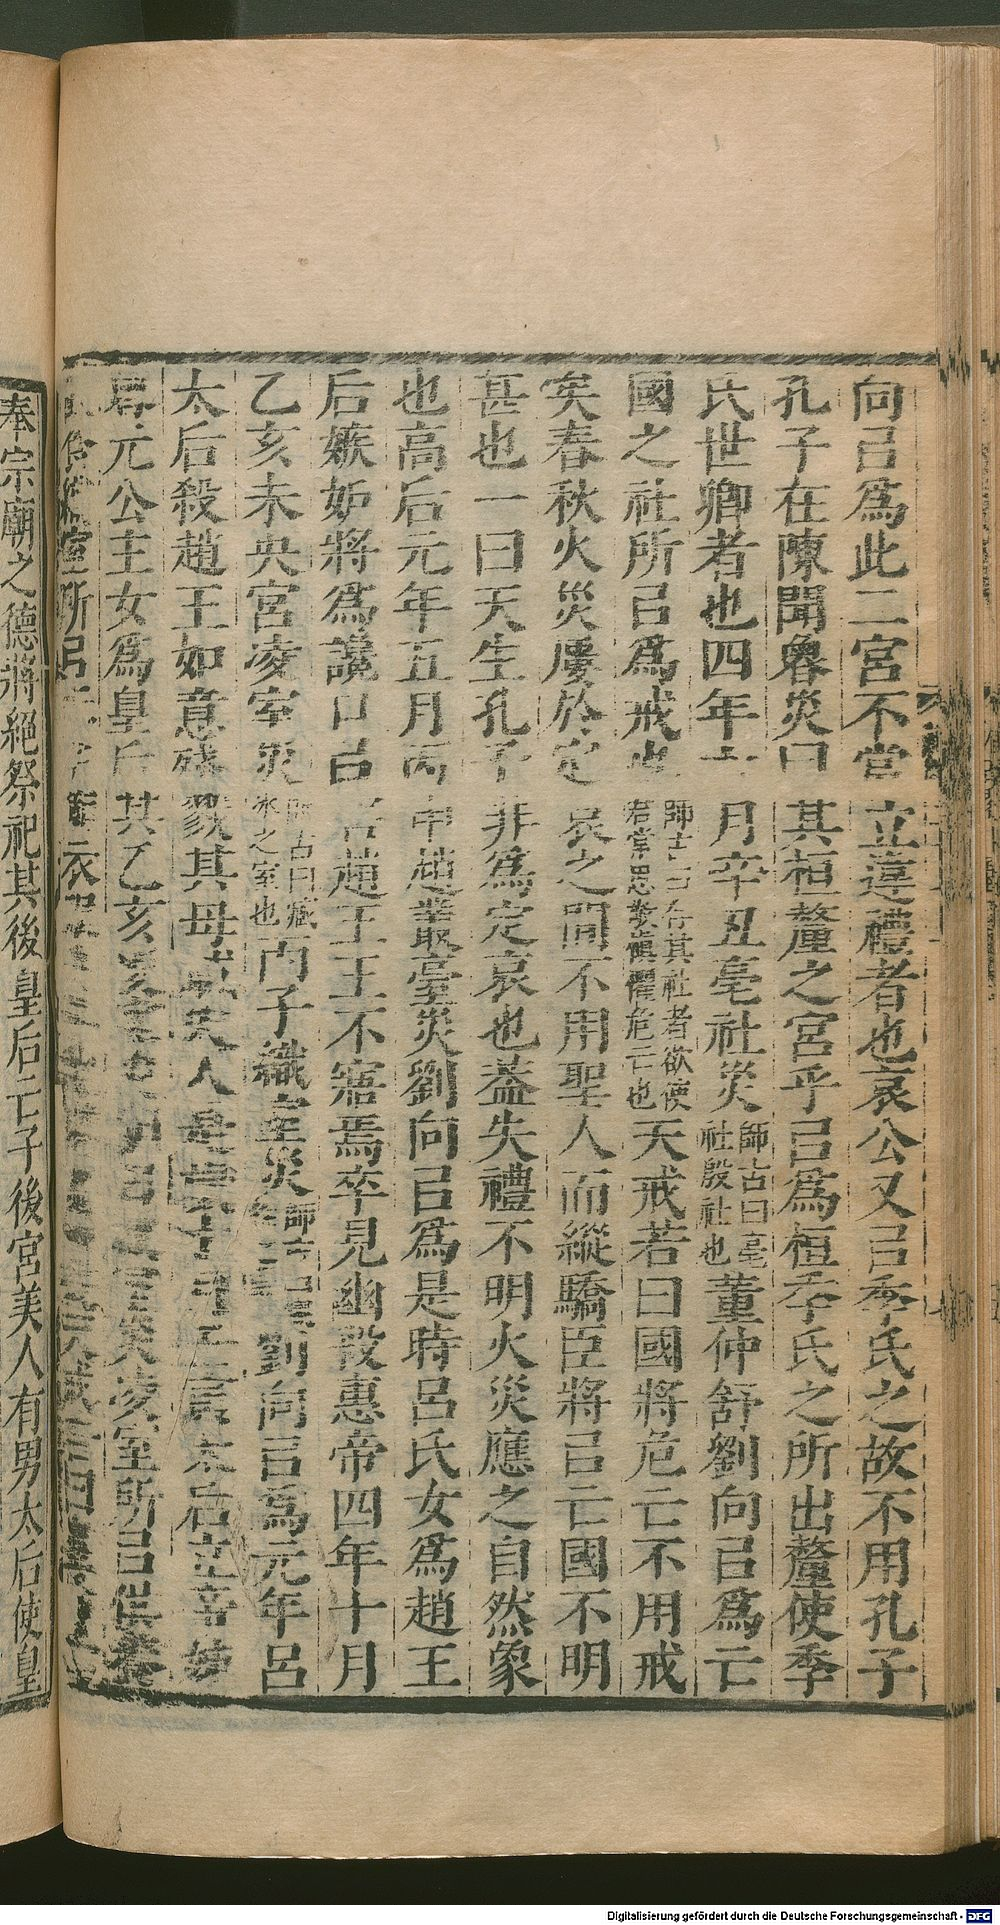 向㠯爲此二宮不當立違禮者也哀公又㠯季氏之故不用孔子
孔子在陳聞魯災曰其桓釐之宮乎㠯爲桓季氏之所出釐使季
氏世卿者也四年六月辛丑亳社災師古曰亳社殷社也董仲舒劉向㠯爲亡
國之社所㠯爲戒也師古曰存其社者欲使若常思敬慎懼危亡也天戒若曰國將危亡不用戒
矣春秋火災屢於定哀之間不用聖人而縱驕臣將㠯亡國不明
甚也一曰天生孔子非爲定哀也蓋失禮不明火災應之自然象
也高后元年五月丙申趙叢臺災劉向㠯爲是時呂氏女爲趙王
后嫉妒將爲讒口㠯害趙王王不寤焉卒見幽殺惠帝四年十月
乙亥未央宮凌室災師古曰藏冰之室也丙子織室災師古曰劉向㠯爲元年呂
太后殺趙王如意殘戮其母戚夫人是歲十月太后立帝姊
魯元公主女爲皇后其乙亥凌室災凌室所㠯供養
織室所㠯宗廟衣
奉宗廟之德將絕祭祀其後皇后亡子後宮美人有男太后使皇
Digitalisierung gefördert durch die Deutsche Forschungsgemeinschaft - DFG